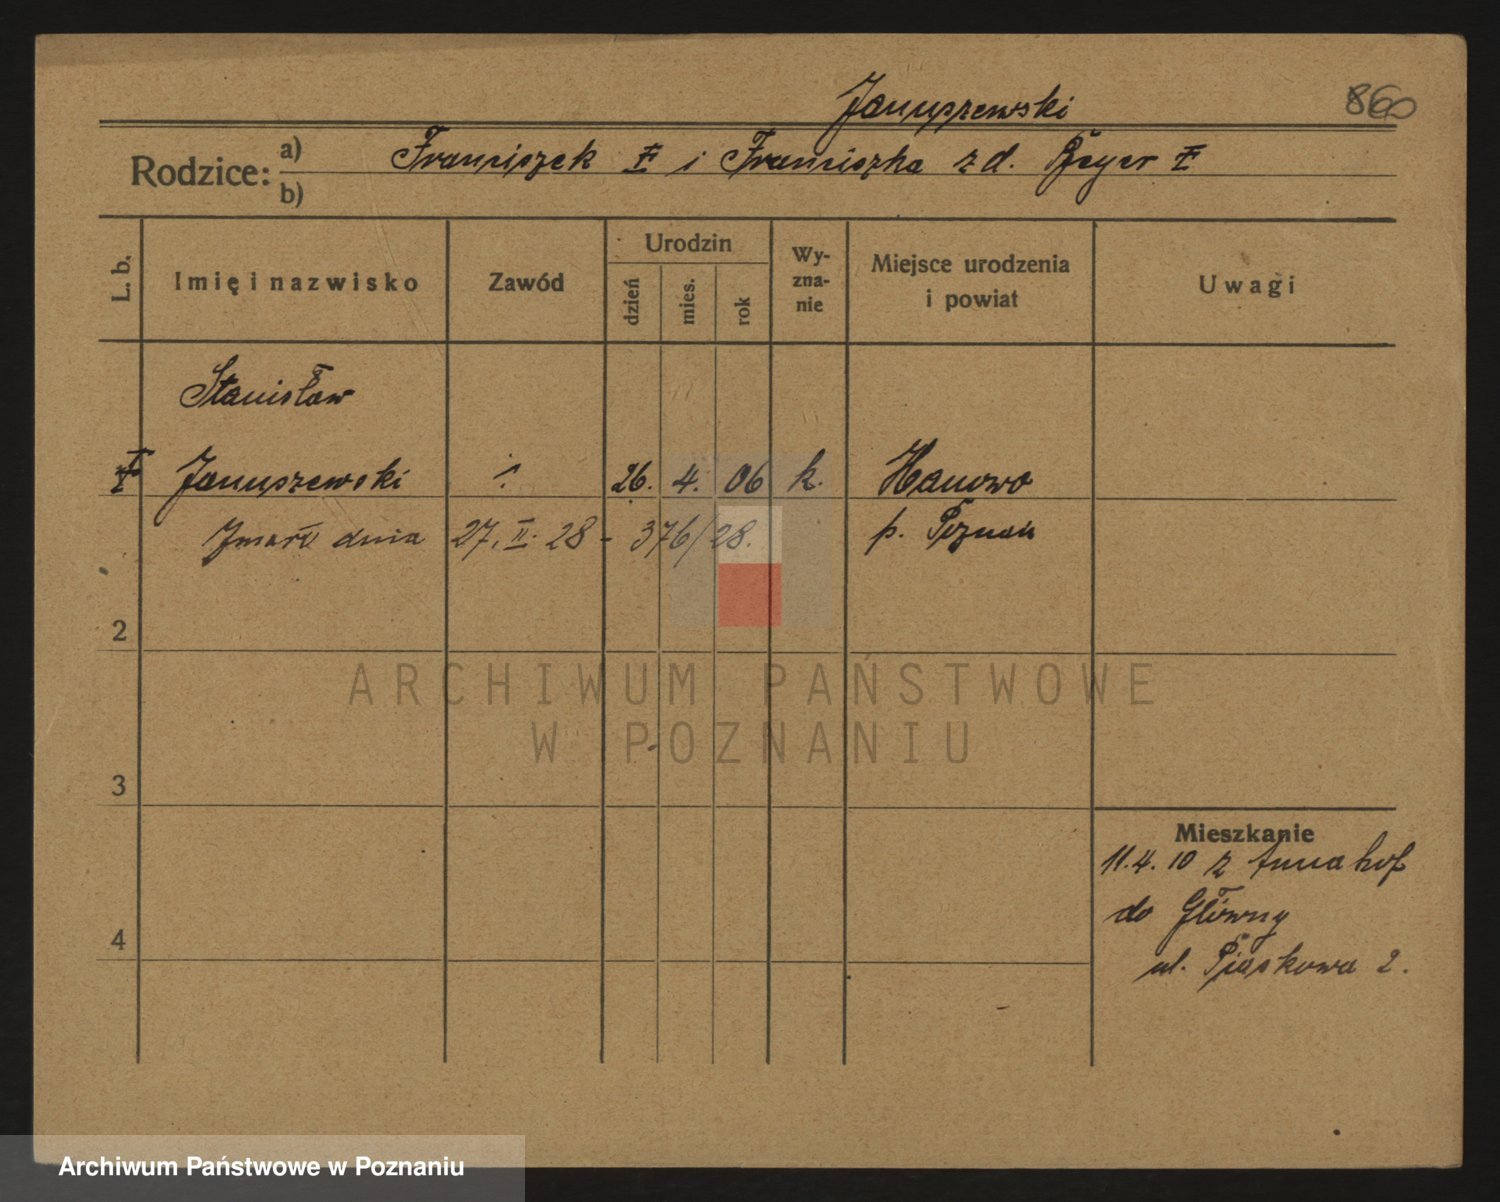 860
Januszewski
Rodzice: a) Franciszek ‡ i Franciszka z d. Beyer ‡
b)
L. b. Imię i nazwisko Zawód Urodzin dzień mies. rok Wyznanie Miejsce urodzenia i powiat Uwagi
Stanisław
Januszewski 26. 4. 06 k. Hanowo
Zmarł dnia 27. II. 28 - 376/28. p. Poznań
2
ARCHIWUM PAŃSTWOWE
W POZNANIU
3
Mieszkanie
11.4.10 z Annahof
do Główny
4
ul. Piaskowa 2.
Archiwum Państwowe w Poznaniu